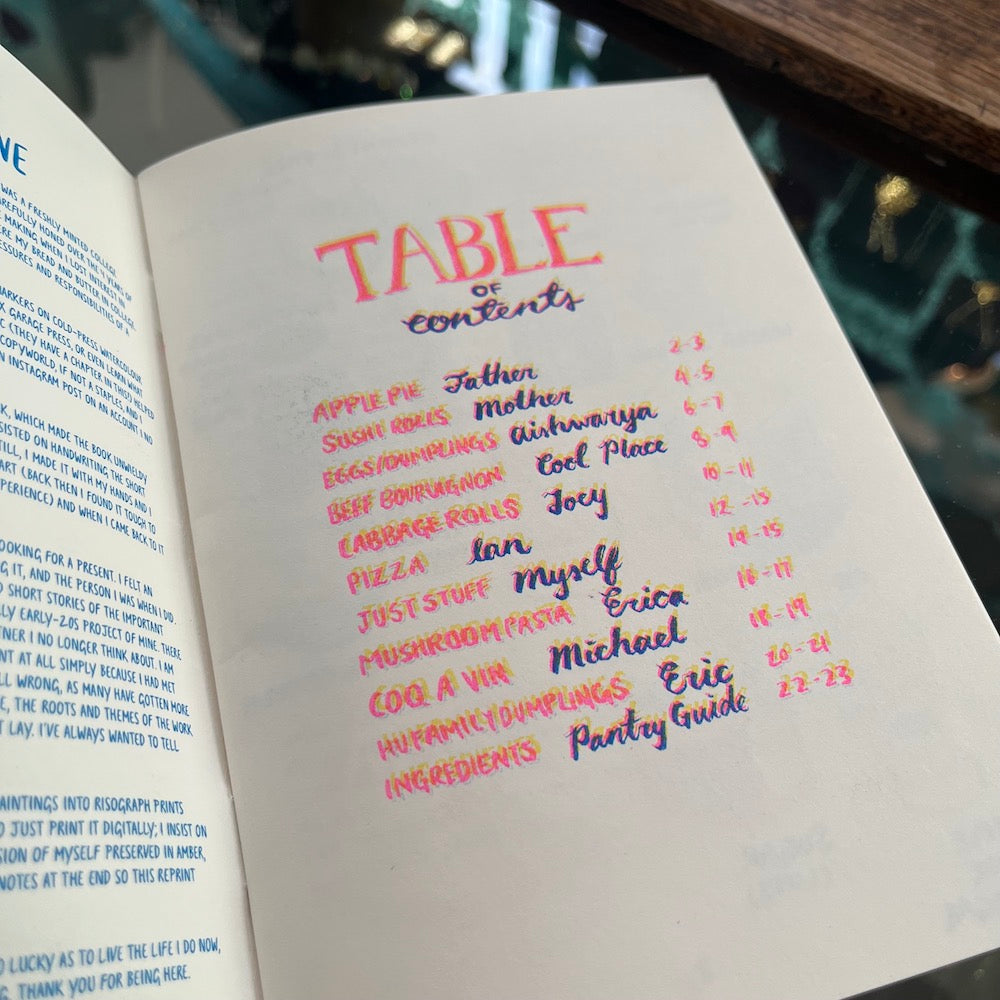 NE
WAS A FRESHLY MINTED COLLEGE
CAREFULLY HONED OVER THE 4 YEARS OF
MAKING WHEN I LOST INTEREST IN
ERE MY BREAD AND BUTTER IN COLLEGE.
ESSURES AND RESPONSIBILITIES OF A
MARKERS ON COLD-PRESS WATERCOLOUR
X GARAGE PRESS, OR EVEN LEARN WHAT
C (THEY HAVE A CHAPTER IN THIS!) HELPED
COPYWORLD, IF NOT A STAPLES, AND I
N INSTAGRAM POST ON AN ACCOUNT I NO
K, WHICH MADE THE BOOK UNWIELDY
SISTED ON HANDWRITING THE SHORT
TILL, I MADE IT WITH MY HANDS AND I
ART (BACK THEN I FOUND IT TOUGH TO
XPERIENCE) AND WHEN I CAME BACK TO IT
OOKING FOR A PRESENT. I FELT AN
NG IT, AND THE PERSON I WAS WHEN I DID.
D SHORT STORIES OF THE IMPORTANT
LLY EARLY-20S PROJECT OF MINE. THERE
TNER I NO LONGER THINK ABOUT. I AM
NT AT ALL SIMPLY BECAUSE I HAD MET
LL WRONG, AS MANY HAVE GOTTEN MORE
E, THE ROOTS AND THEMES OF THE WORK
T LAY. I'VE ALWAYS WANTED TO TELL
AINTINGS INTO RISOGRAPH PRINTS
D JUST PRINT IT DIGITALLY; I INSIST ON
SION OF MYSELF PRESERVED IN AMBER,
NOTES AT THE END SO THIS REPRINT
O LUCKY AS TO LIVE THE LIFE I DO NOW,
G. THANK YOU FOR BEING HERE.
TABLE
OF
contents
APPLE PIE Father 2-3
SUSHI ROLLS Mother 4-5
EGGS/DUMPLINGS Aishwarya 6-7
BEEF BOURUIGNON Cool Place 8-9
CABBAGE ROLLS Joey 10-11
PIZZA Ian 12-13
JUST STUFF Myself 14-15
MUSHROOM PASTA Erica 16-17
COQ A VIN Michael 18-19
HU FAMILY DUMPLINGS Eric 20-21
INGREDIENTS Pantry Guide 22-23